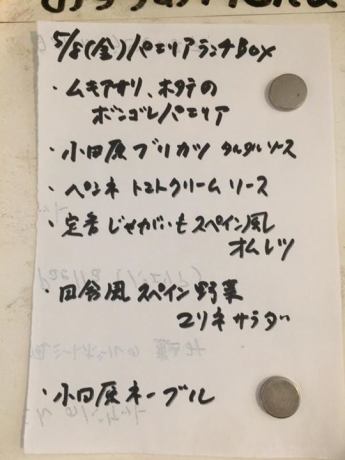 5/8(金)パエリアランチBOX
・ムキアサリ、ホタテの
ボンゴレパエリア
・小田原ブリカツ タルタルソース
・ペンネ トマトクリームソース
・定番じゃがいもスペイン風
オムレツ
・田舎風スペイン野菜
マリネサラダ
・小田原ネーブル